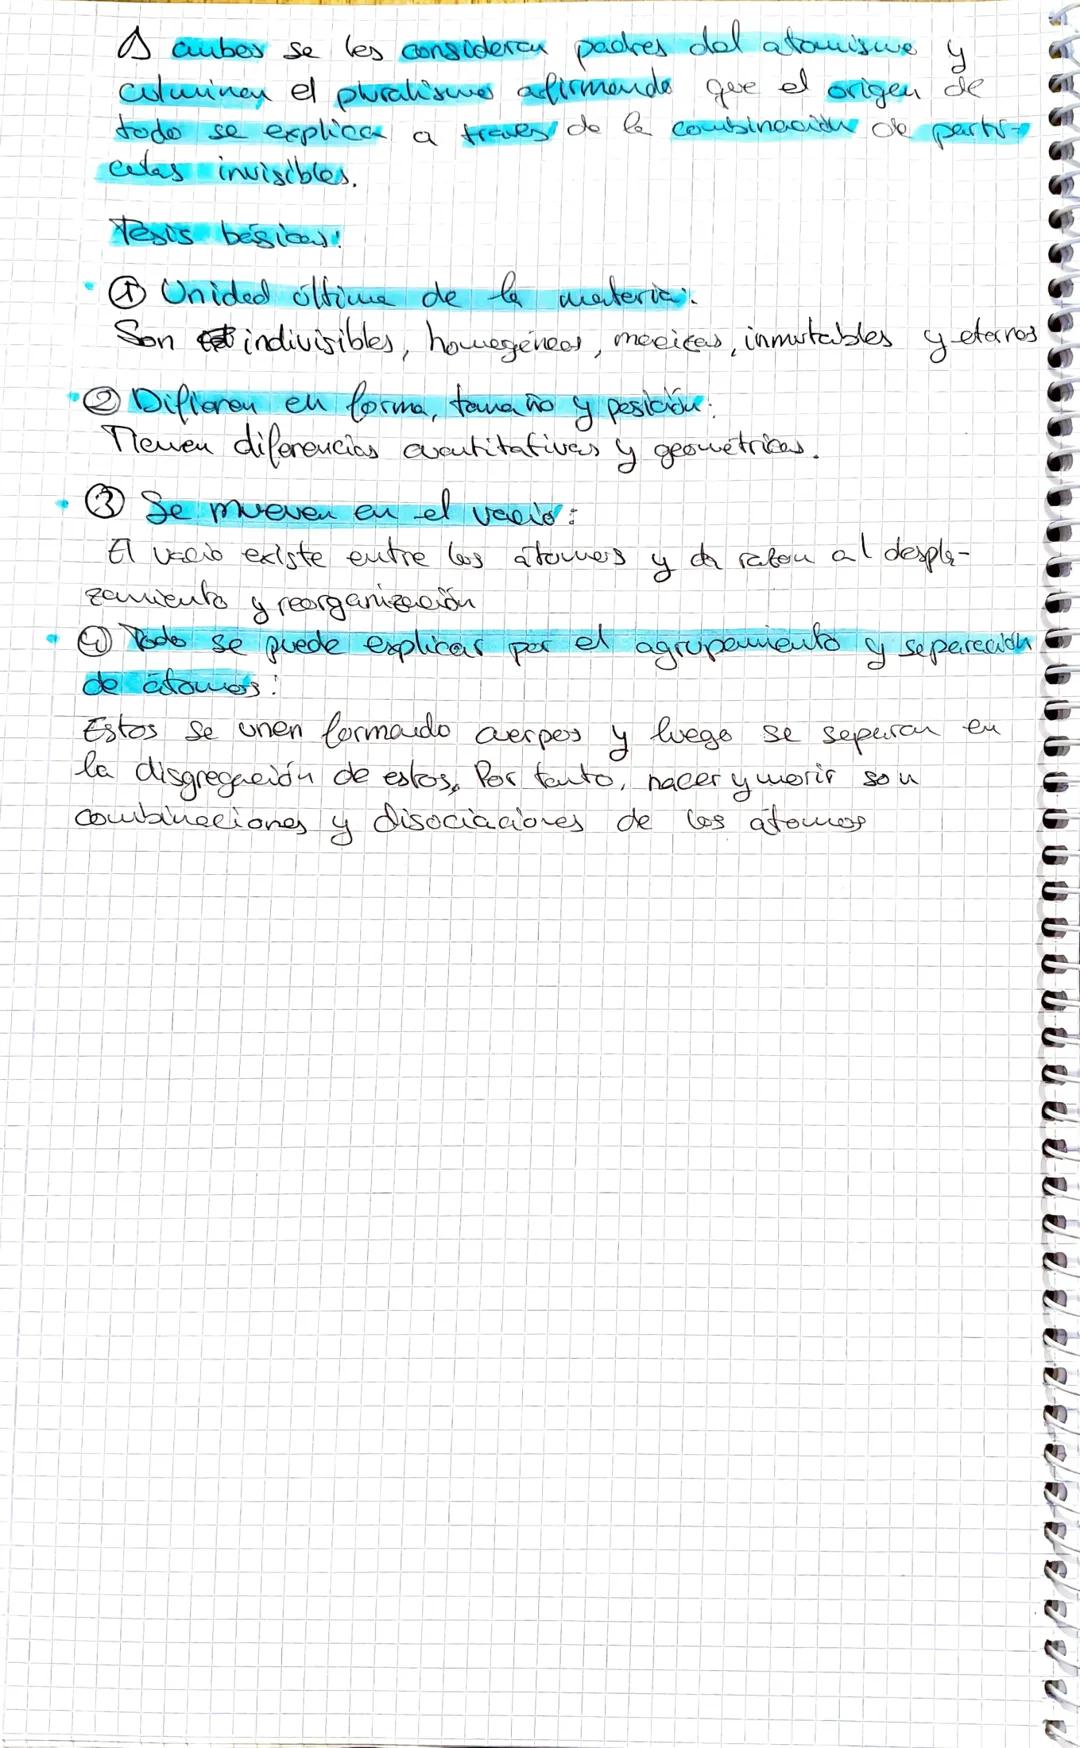 A ambos se les consideran padres del atomismo y
culminan el pluralismo afirmando que el origen de
todo se explica a través de la combinación de partí-
culas invisibles.
Tesis básicas:
① Unidad última de la materia:
Son indivisibles, homogéneos, macizas, inmutables y eternos
② Difieren en forma, tamaño y posición:
Tienen diferencias cuantitativas y geométricas.
③ Se mueven en el vacío:
El vacío existe entre los átomos y da razon al despla-
zamiento y reorganización
④ Todo se puede explicar por el agrupamiento y separación
de átomos:
Estos se unen formando cuerpos y luego se separan en
la disgregación de estos. Por tanto, nacer y morir son
combinaciones y disociaciones de los átomos